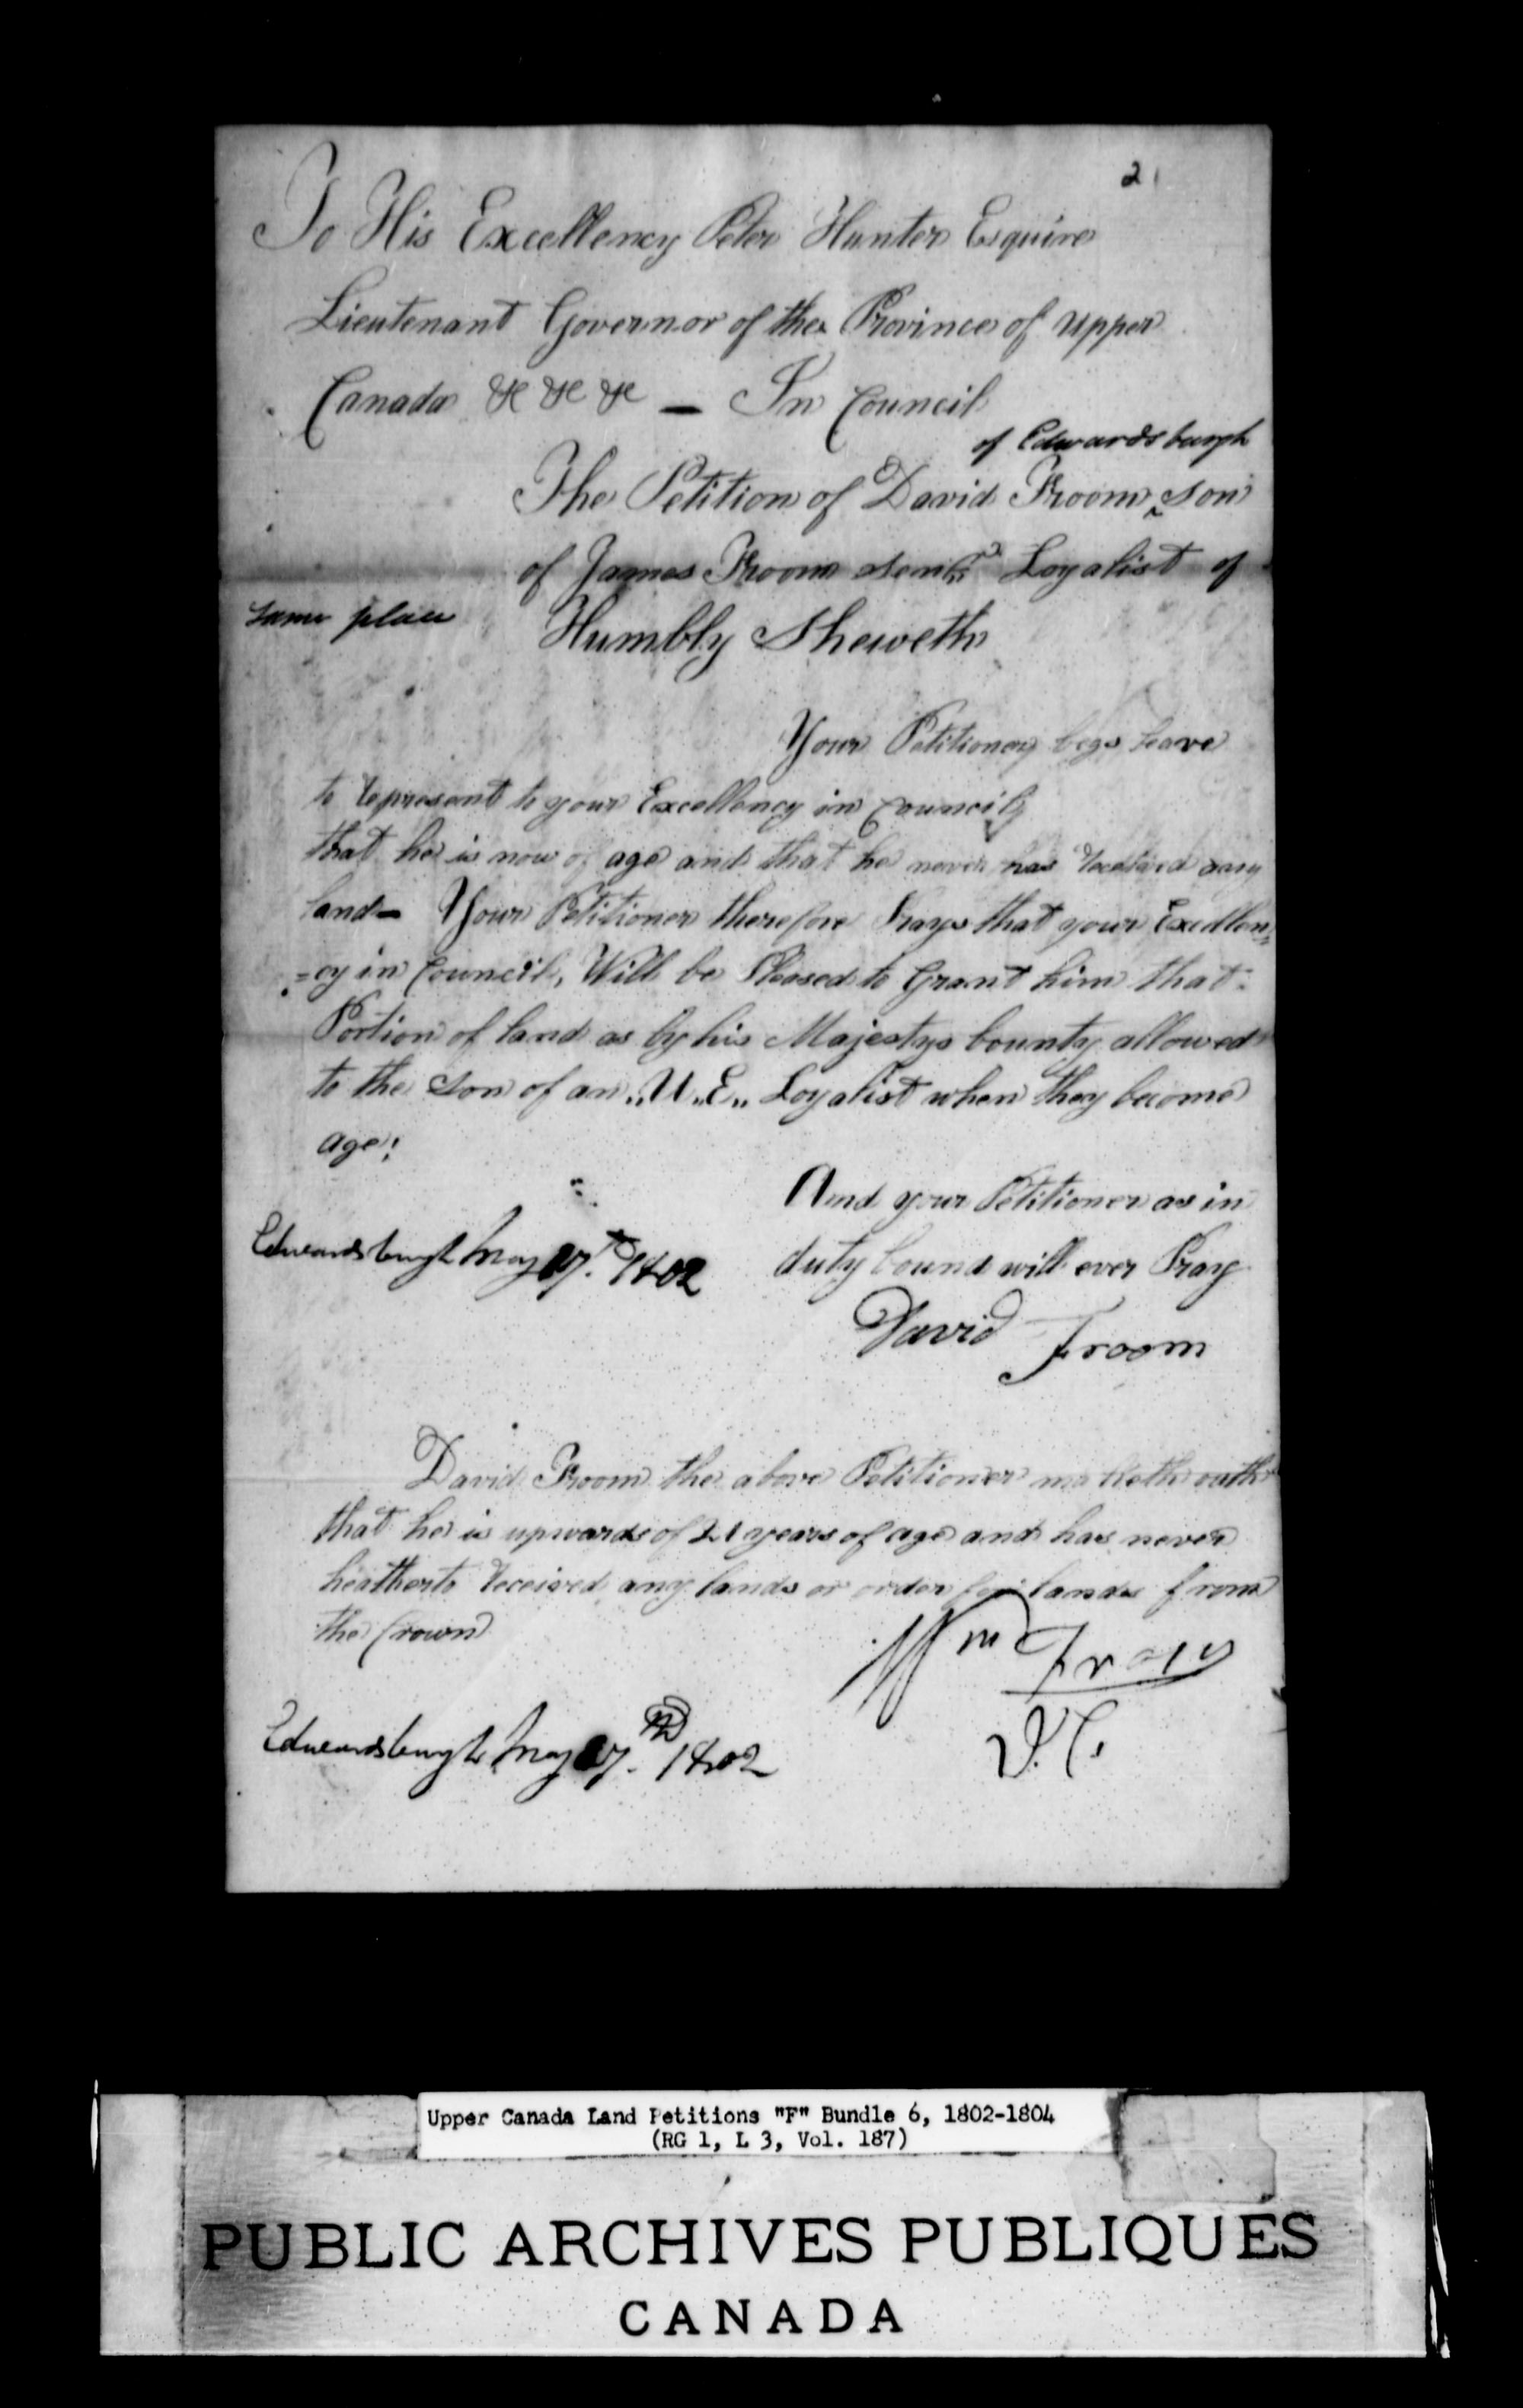 21
To His Excellency Peter Hunter Esquire
Lieutenant Governor of the Province of Upper
Canada &c &c &c — In Council
of Edwardsburgh
The Petition of David Froom ‸ son
of James Froom Senr. Loyalist of
same place
Humbly Sheweth
Your Petitioner begs leave
to represent to your Excellency in Council,
that he is now of age and that he never has received any
land — Your Petitioner therefore Prays that your Excellen=
=cy in Council, Will be Pleased to Grant him that
Portion of land as by his Majestys bounty allowed
to the son of an „U„E„ Loyalist when they become
age:
And your Petitioner as in
duty bound will ever Pray
Edwardsburgh May 27th. 1802
David Froom
David Froom the above Petitioner maketh oath
that he is upwards of 21 years of age and has never
heatherto received any lands or order for lands from
the Crown
Wm
Edwardsburgh May 27th. 1802
Upper Canada Land Petitions "F" Bundle 6, 1802-1804
(RG 1, L 3, Vol. 187)
PUBLIC ARCHIVES PUBLIQUES
CANADA